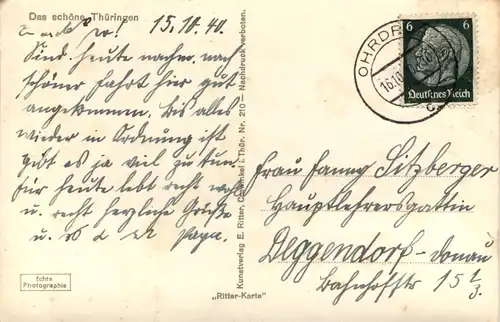 Das schöne Thüringen
15.10.40.
Sind heute nachm. nach
schöner Fahrt hier gut
angekommen. Bis alles
wieder in Ordnung ist
gibt es ja viel zu tun.
Für heute lebt recht wohl
u. recht herzliche Grüße
u. Papa.
Echte
Photographie
Kunstverlag E. Ritter, i. Thür. Nr. 210 — Nachdruck verboten.
„Ritter-Karte"
OHRDR
16.10
6 6
Deutsches Reich
Frau Fanny Sitzberger
Hauptlehrersgattin
Deggendorf-Donau
Bahnhofstr 15 1/3.